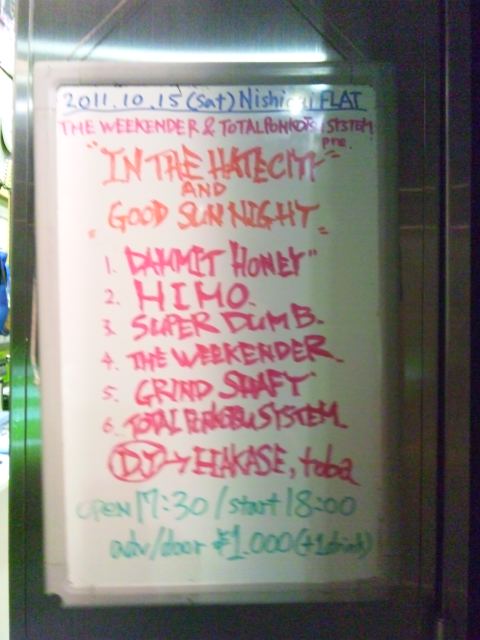 2011.10.15 (Sat) Nishiogi FLAT
THE WEEKENDER & TOTAL PONKOTSU SYSTEM
pre.
"IN THE HATECITY"
AND
"GOOD SUN NIGHT"
1. DAMMIT HONEY"
2. HIMO.
3. SUPER DUMB.
4. THE WEEKENDER.
5. GRIND SHAFT
6. TOTAL PONKOTSU SYSTEM.
DJ → HAKASE, toba
OPEN 17:30 / start 18:00
adv/door ¥1.000 (+1drink)